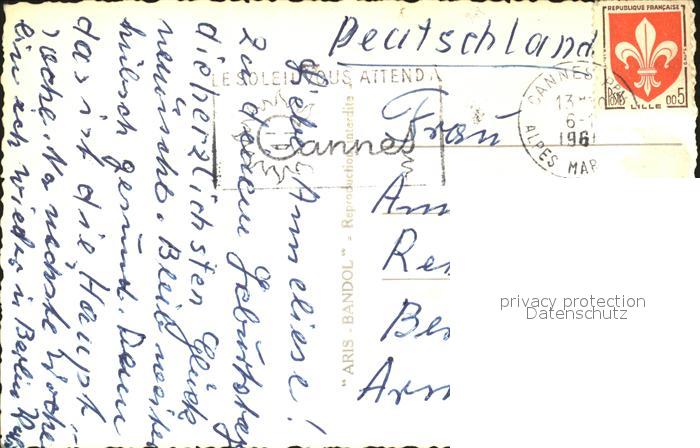 Deutschland
REPUBLIQUE FRANÇAISE
Postes
0,05
LILLE
LE SOLEIL VOUS ATTEND A
Cannes
CANNES
13
6-
196
ALPES MAR
Frau
Am
Re
Be
Arn
"ARIS - BANDOL" - Reproduction interdite
Liebe Anneliese!
Zu deinem Geburtstag
die herzlichsten Glück
wünsche. Bleib weiter
hübsch gesund. Denn
das ist die Haupt
sache. Na nächste Woche
sind wieder in Berlin
privacy protection
Datenschutz